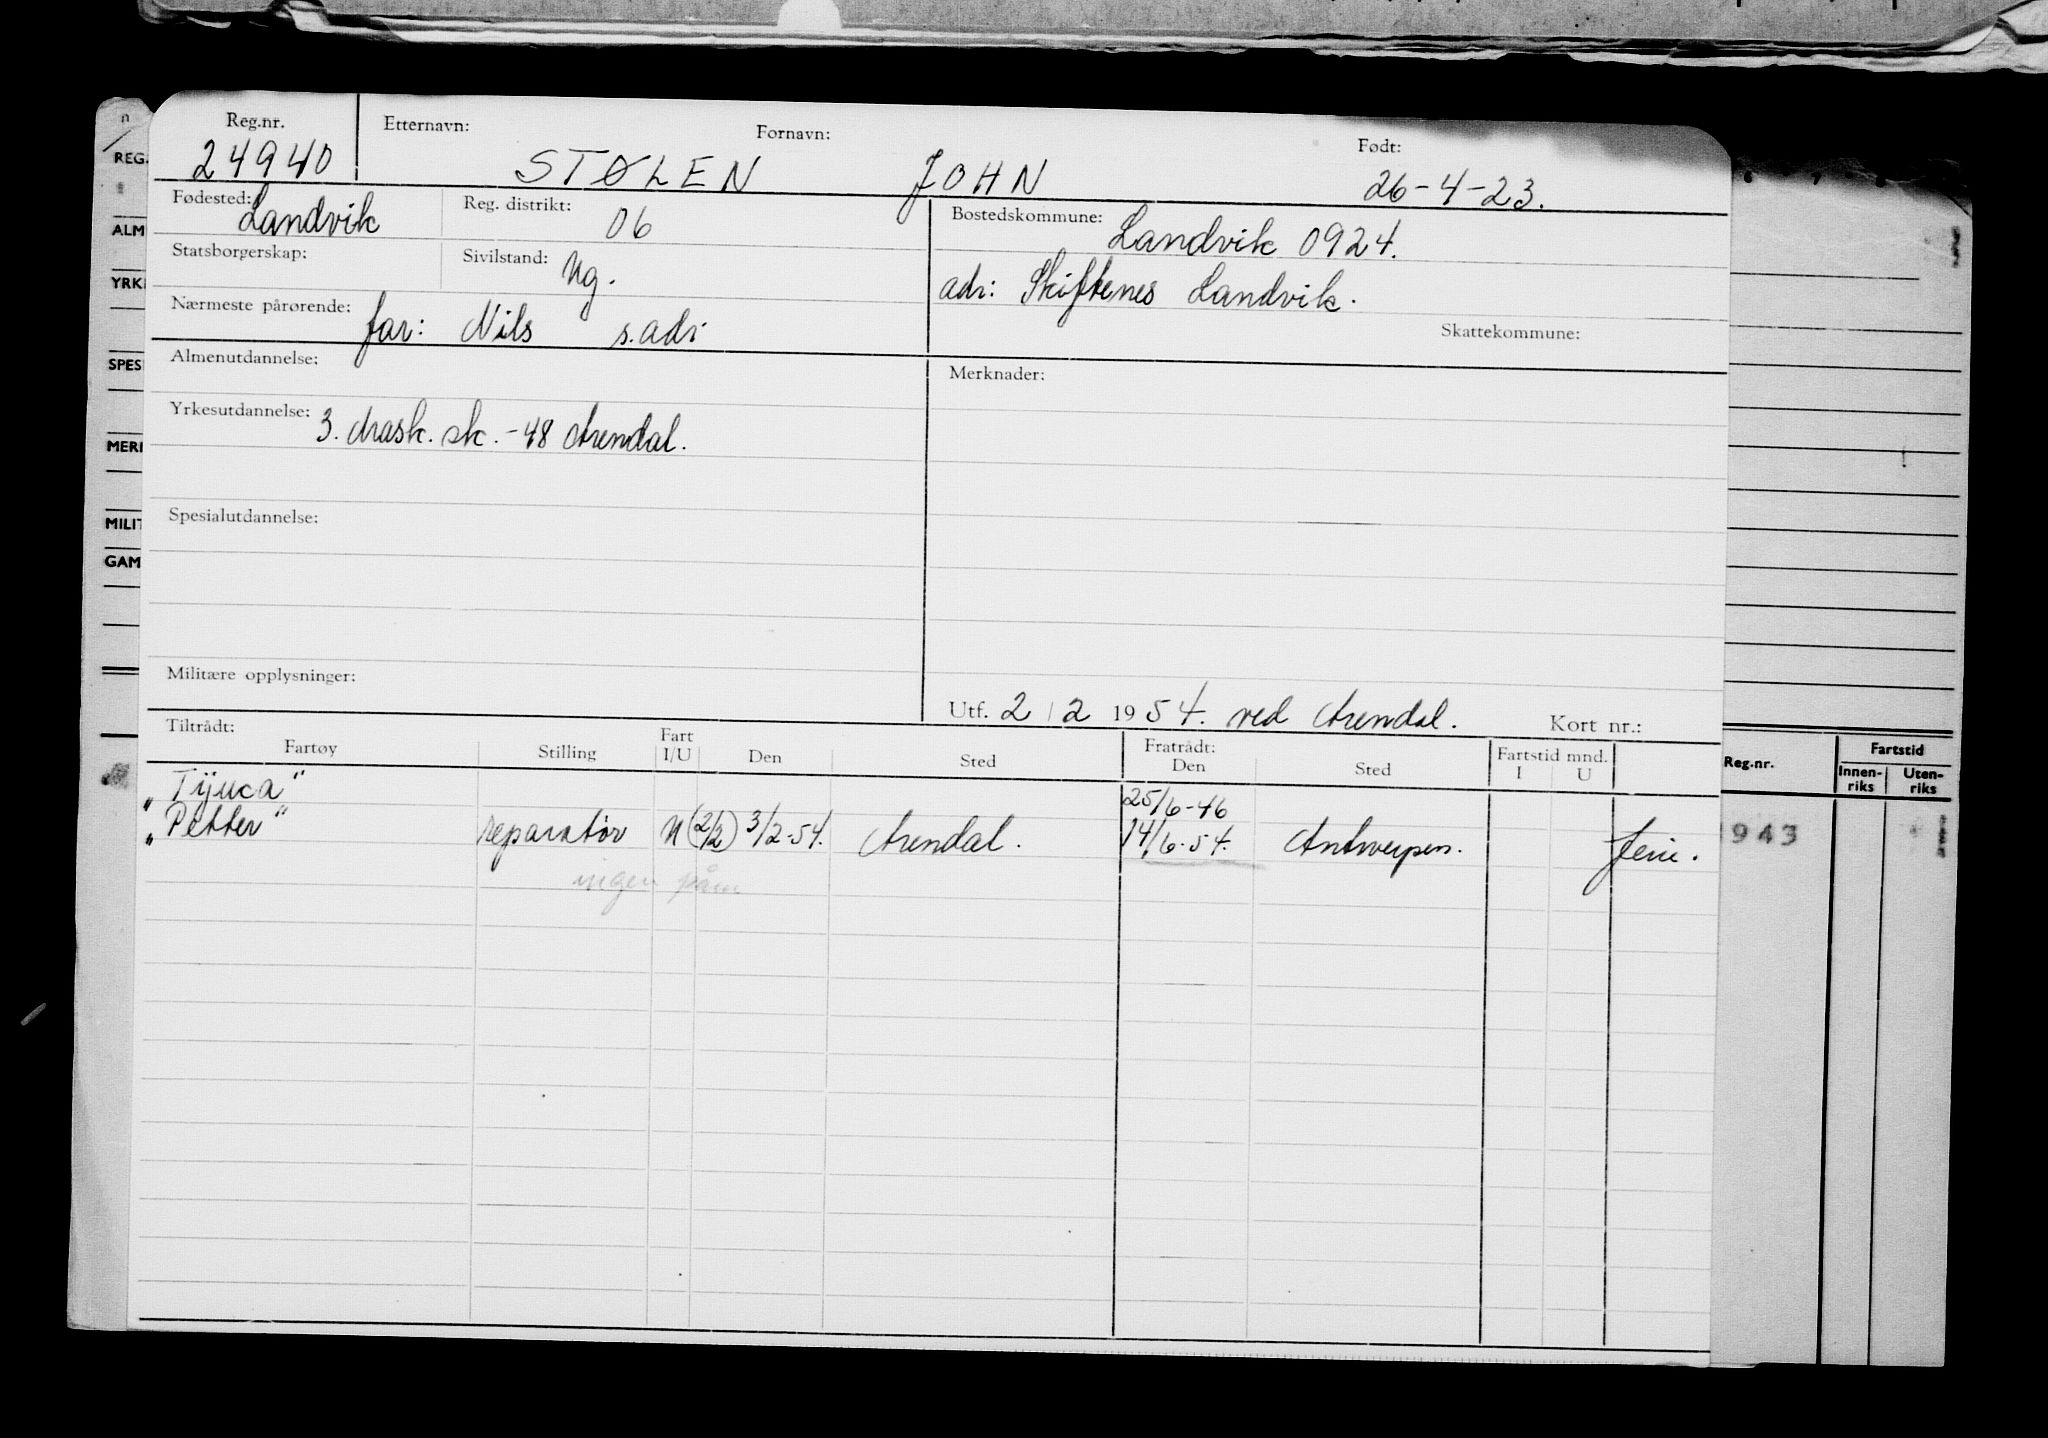 Reg.nr. Etternavn: Fornavn: Født:
24940 STØLEN JOHN 26-4-23.
Fødested: Landvik Reg. distrikt: 06 Bostedskommune: Landvik 0924.
Statsborgerskap: Sivilstand: Ug. adr: Skiftenes Landvik.
Nærmeste pårørende: far: Nils s.adr Skattekommune:
Almenutdannelse: Merknader:
Yrkesutdannelse: 3. mask. sk. -48 Arendal.
Spesialutdannelse:
Militære opplysninger:
Utf. 2/2 1954. ved Arendal. Kort nr.:
Tiltrådt: Fratrådt:
Fartøy Stilling Fart I/U Den Sted Den Sted Fartstid mnd. I U
"Tijuca" 25/6-46
"Petter" reparatør U (2/2) 3/2-54. Arendal. 14/6-54. Antwerpen. ferie.
ingen
n
REG.
ALM
YRK
SPES
MER
MILIT
GAM
Reg.nr. Fartstid
Innen-riks Uten-riks
1943